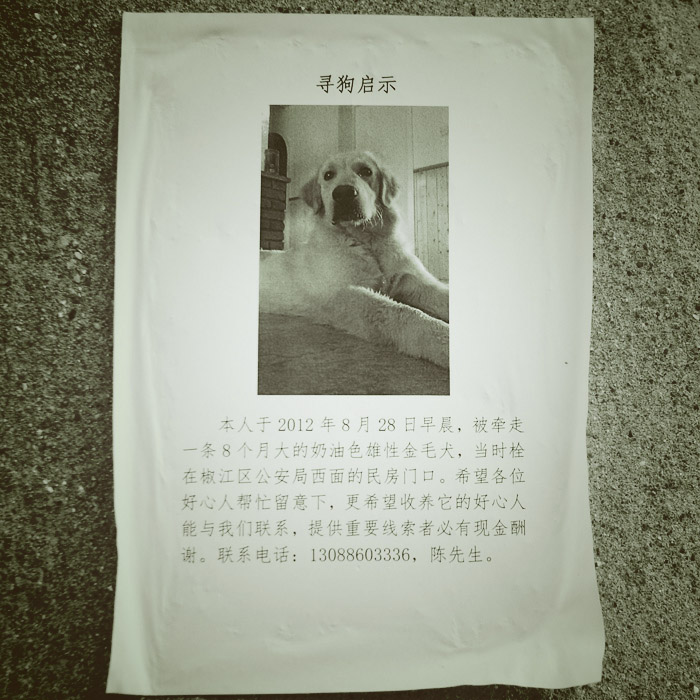 寻狗启示
本人于 2012 年 8 月 28 日早晨，被牵走
一条 8 个月大的奶油色雄性金毛犬，当时栓
在椒江区公安局西面的民房门口。希望各位
好心人帮忙留意下，更希望收养它的好心人
能与我们联系，提供重要线索者必有现金酬
谢。联系电话：13088603336，陈先生。